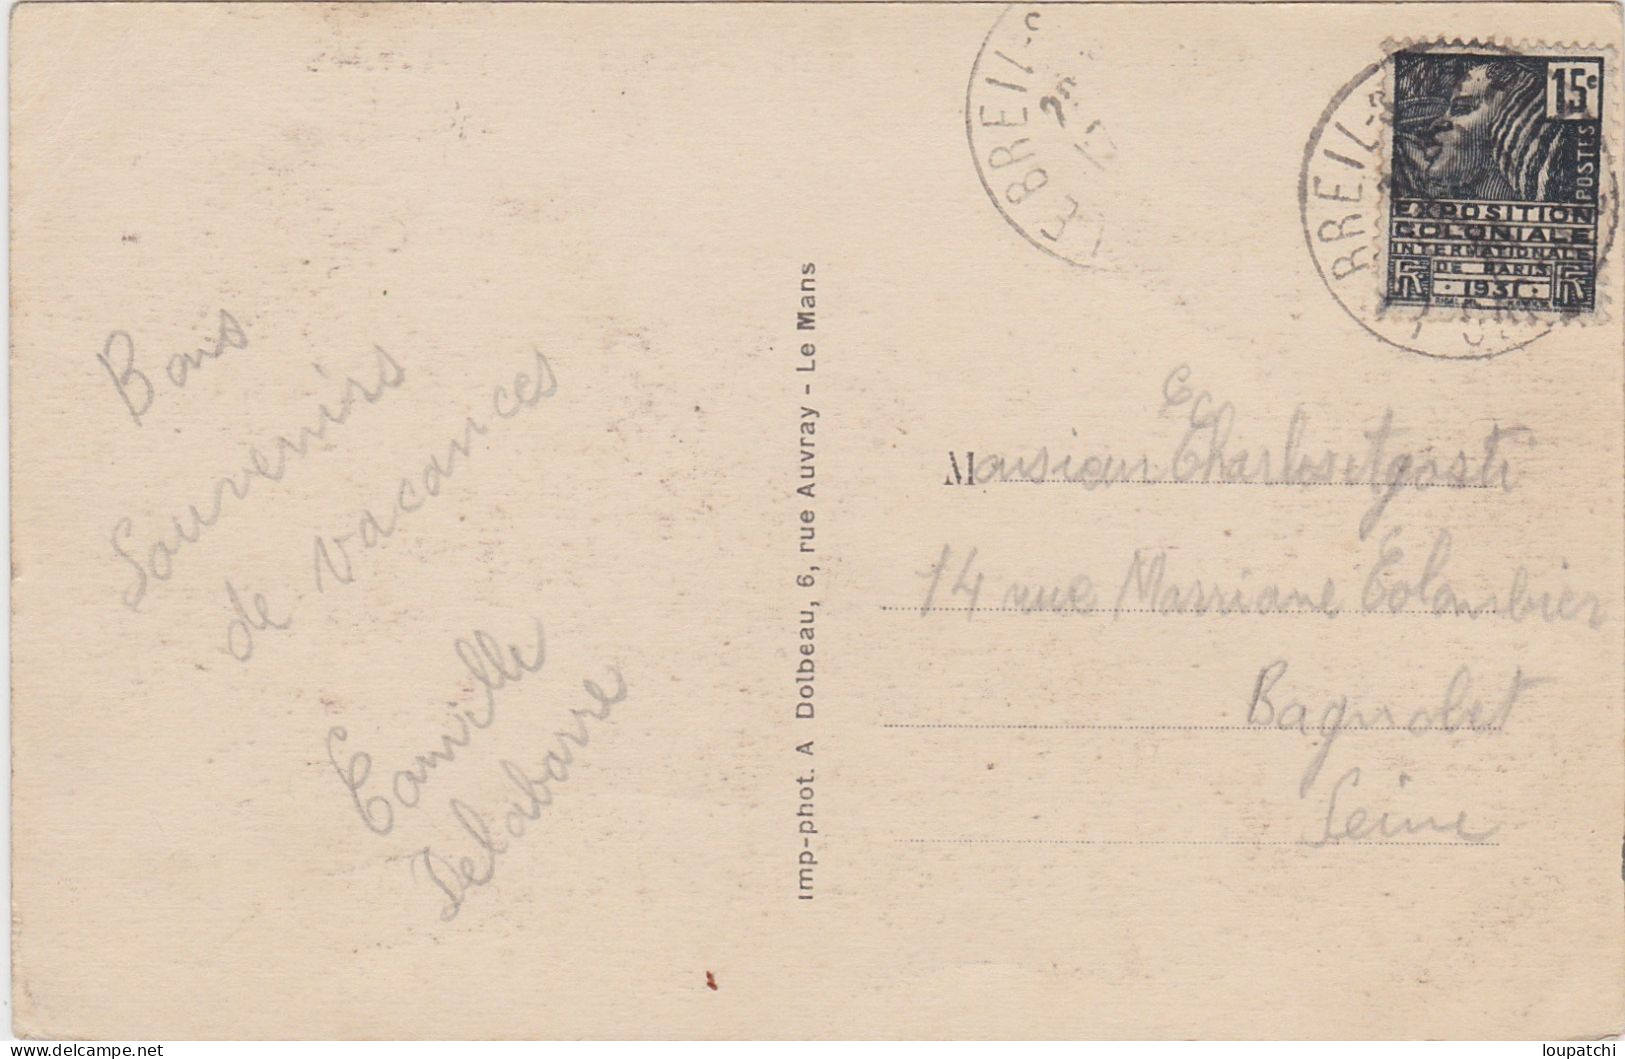 Bons
Souvenirs
de vacances
Camille
Delabarre
Imp-phot. A Dolbeau, 6, rue Auvray - Le Mans
LE BREIL-S
BREIL-S
15c
POSTES
EXPOSITION
COLONIALE
INTERNATIONALE
DE PARIS
RF 1931 RF
Monsieur Charles
14 rue Marriane Colombier
Bagnolet
Seine
delcampe.net
loupatchi